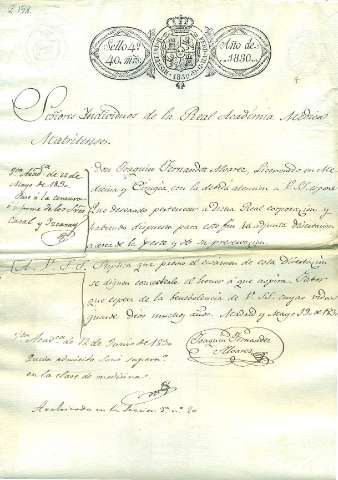 2198
Sello 4º
40. mrs.
Año de
1830.
1830
Señores Individuos de la Real Académia Médica
Matritense.
Don Joaquin Fernandez Alvarez, Licenciado en Me-
dicina y Cirugía con la debida atencion á V.SS. expone
Que deseando pertenecer á Dicha Real Corporacion y
habiendo dispuesto para este fin la adjunta Disertacion
acerca de la peste y de su preservacion.
de 22 de
Mayo de 1830
Pase á la censura
é informe de los Sres
Casal y
A V.SS. Suplica que previo el exámen de esta Disertacion
se dignen concederle el honor á que aspira. Favor
que espera de la benevolencia de V.SS. cuyas vidas
guarde Dios muchos años. Madrid y Mayo 19 de 1830
Joaquin Fernandez
Alvarez
de 12 de Junio de 1830
Queda admitido Socio
en la clase de medicina.
Archivado en la Seccion 5ª nº 20